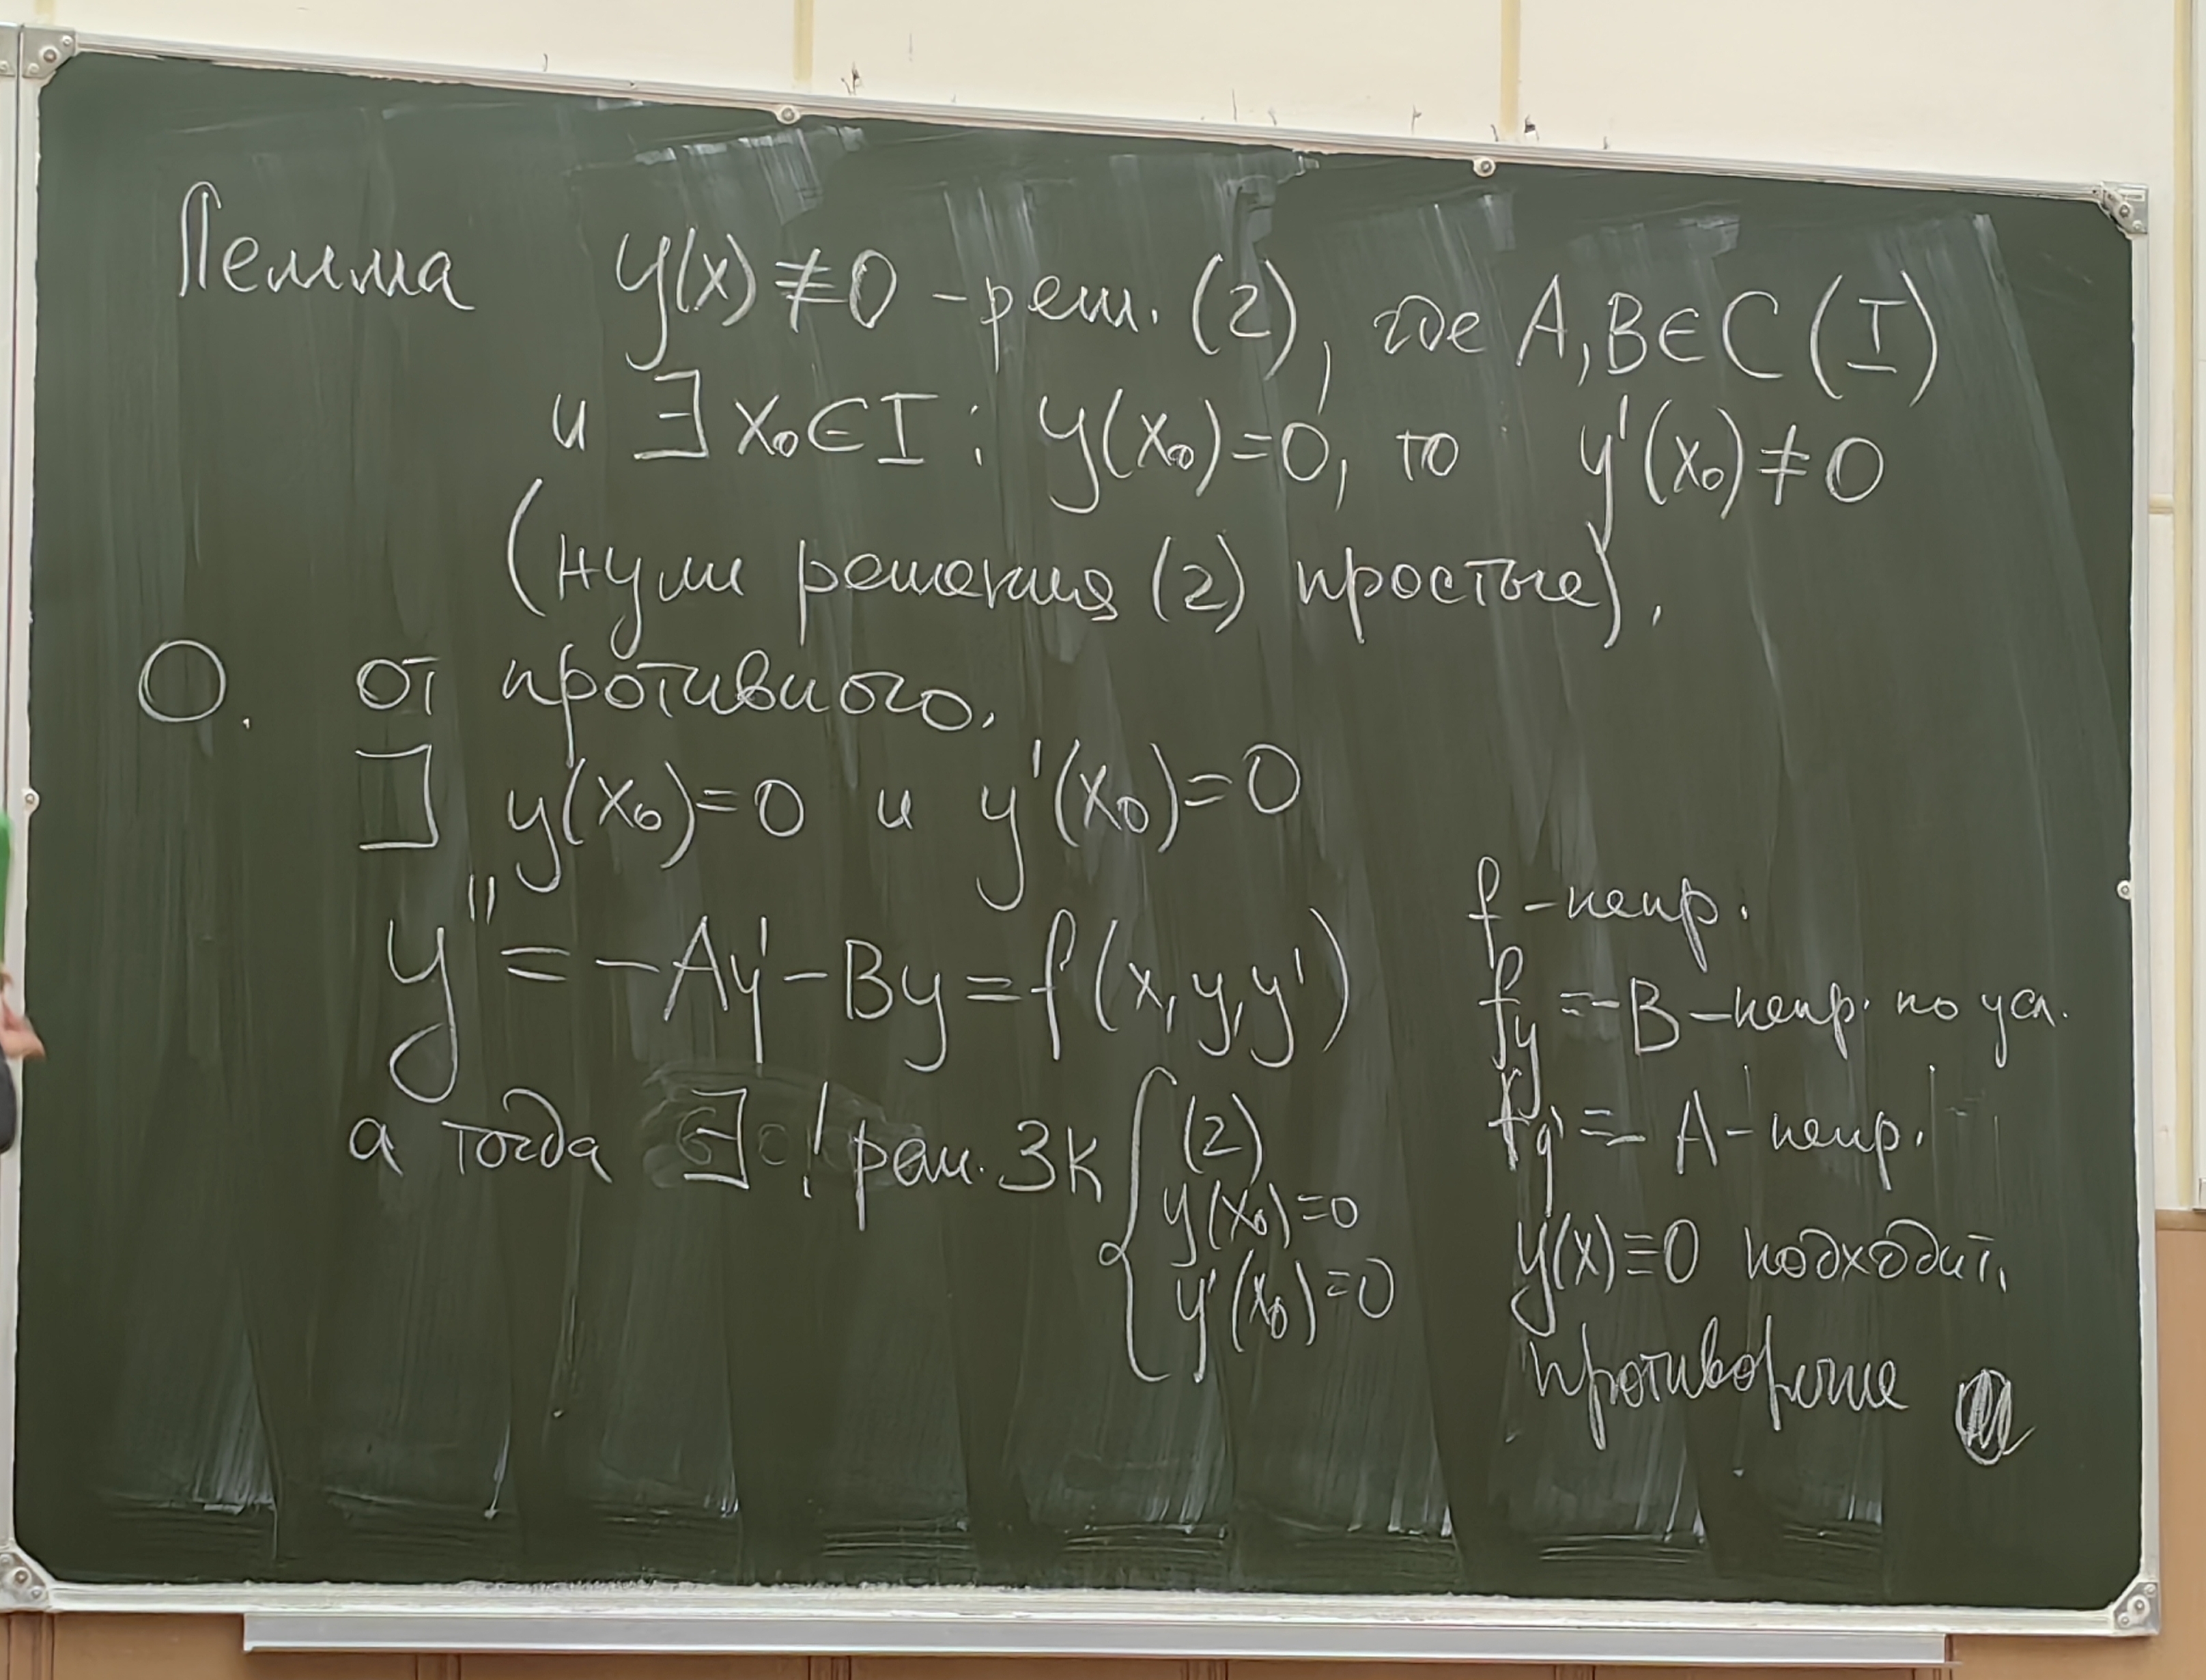 Лемма y(x) ≢ 0 – реш. (2), где A, B ∈ C (I)
и ∃ x₀ ∈ I : y(x₀) = 0, то y'(x₀) ≠ 0
(нули решения (2) простые).
О. от противного.
∃ y(x₀) = 0 и y'(x₀) = 0
y'' = –Ay' – By = f(x, y, y')
а тогда ∃! реш. ЗК { (2)
y(x₀) = 0
y'(x₀) = 0
f – непр.
f_y = –B – непр. по усл.
f_y' = – A – непр.
y(x) ≡ 0 подходит.
противоречие